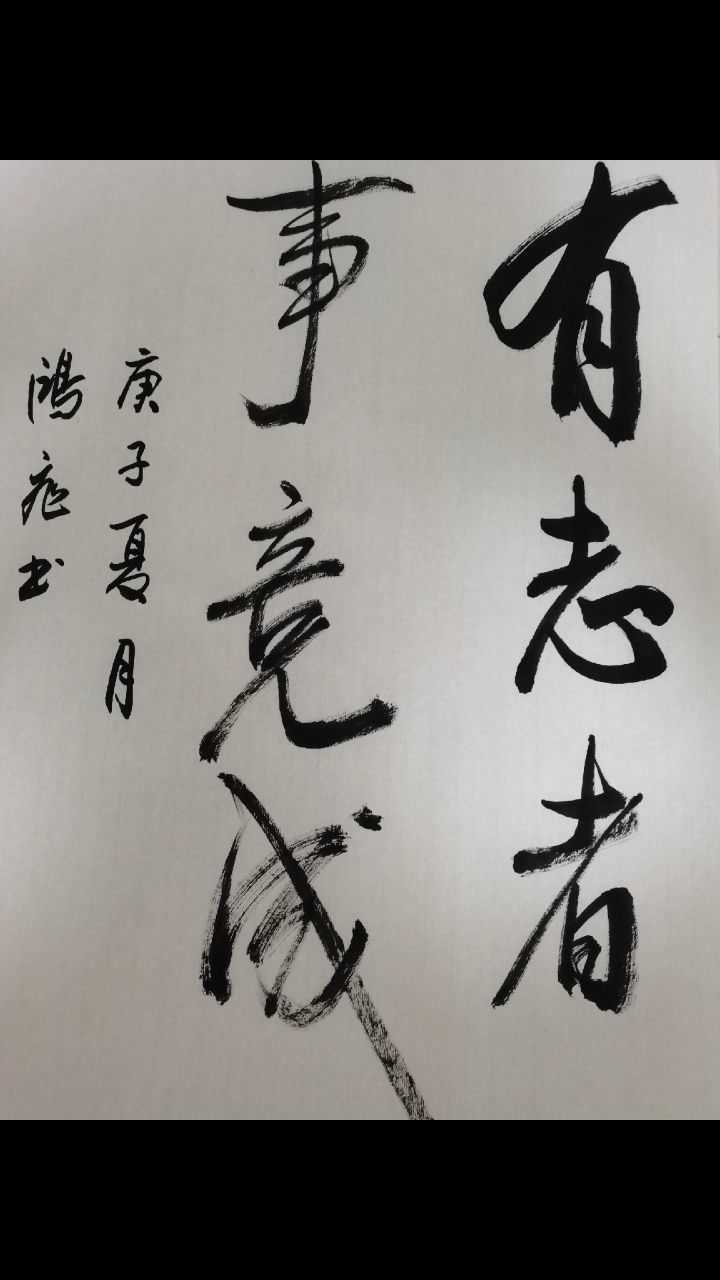 有志者
事竟成
庚子夏月
鴻 书